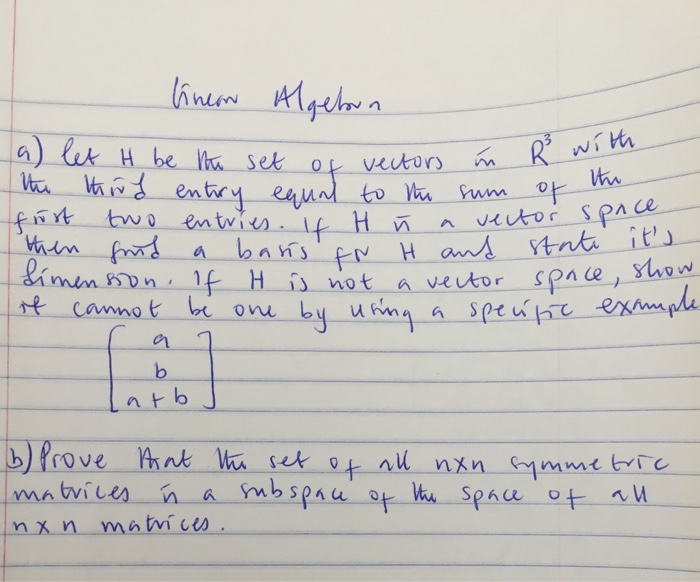 Linear Algebra
a) let H be the set of vectors in R³ with
the third entry equal to the sum of the
first two entries. If H is a vector space
then find a basis for H and state it's
dimension. If H is not a vector space, show
it cannot be one by using a specific example
[a
b
a+b]
b) Prove that the set of all nxn symmetric
matrices is a subspace of the space of all
nxn matrices.